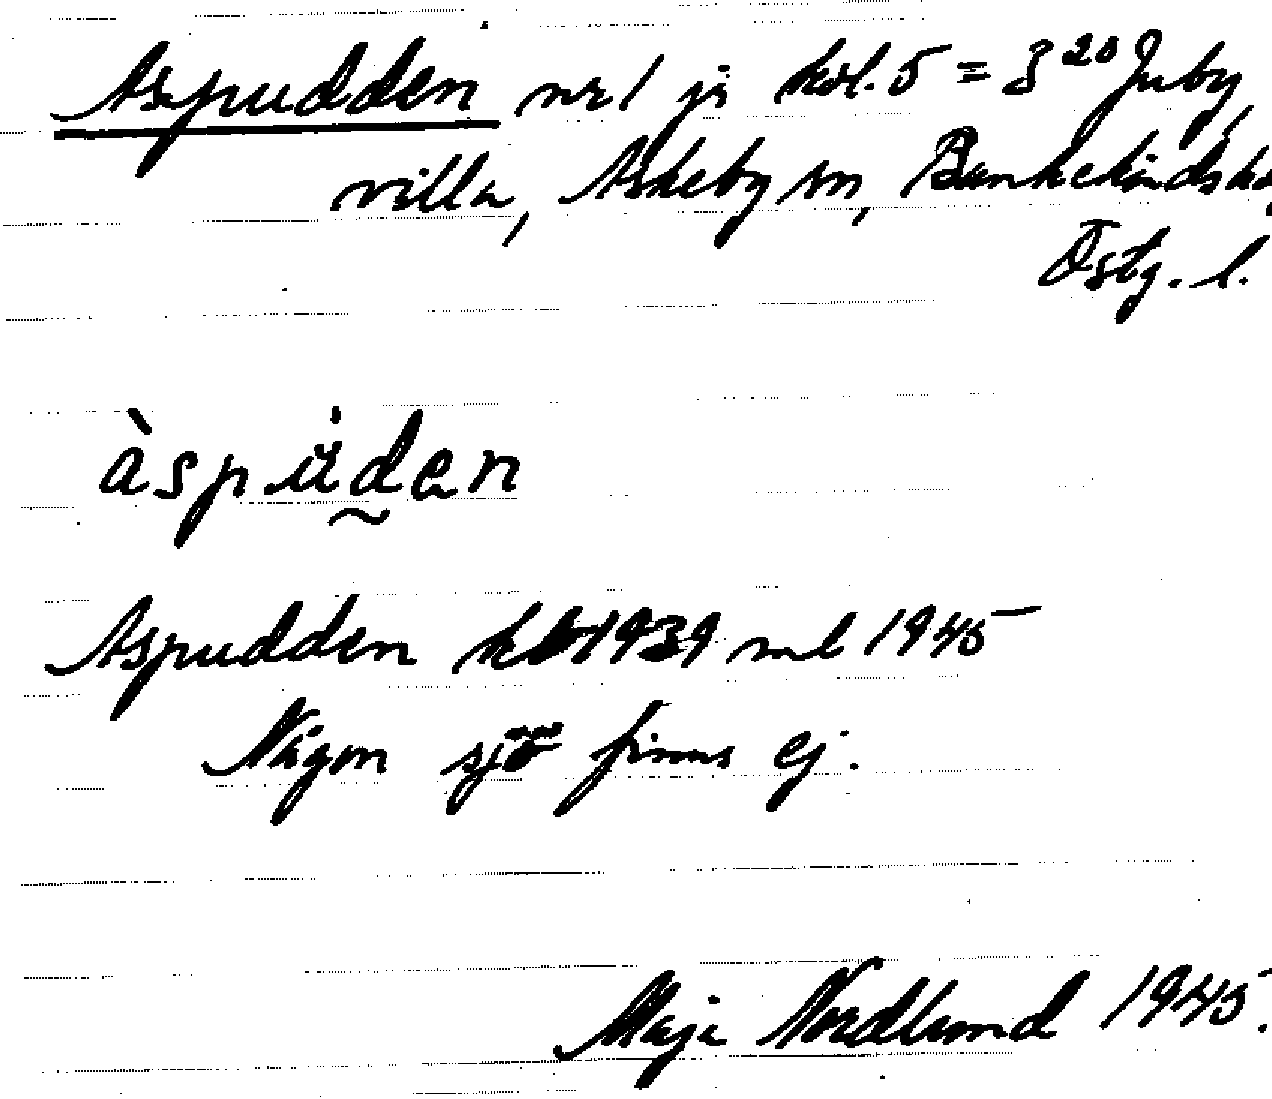 Aspudden nr 1 på kbl. 5 = 3 20 Juby,
villa, Askeby sn, Bankekinds hd
Östg. l.
àspu̇den
Aspudden kbl 1939 ml 1945
Någon sjö finns ej.
Maja Nordlund 1945.